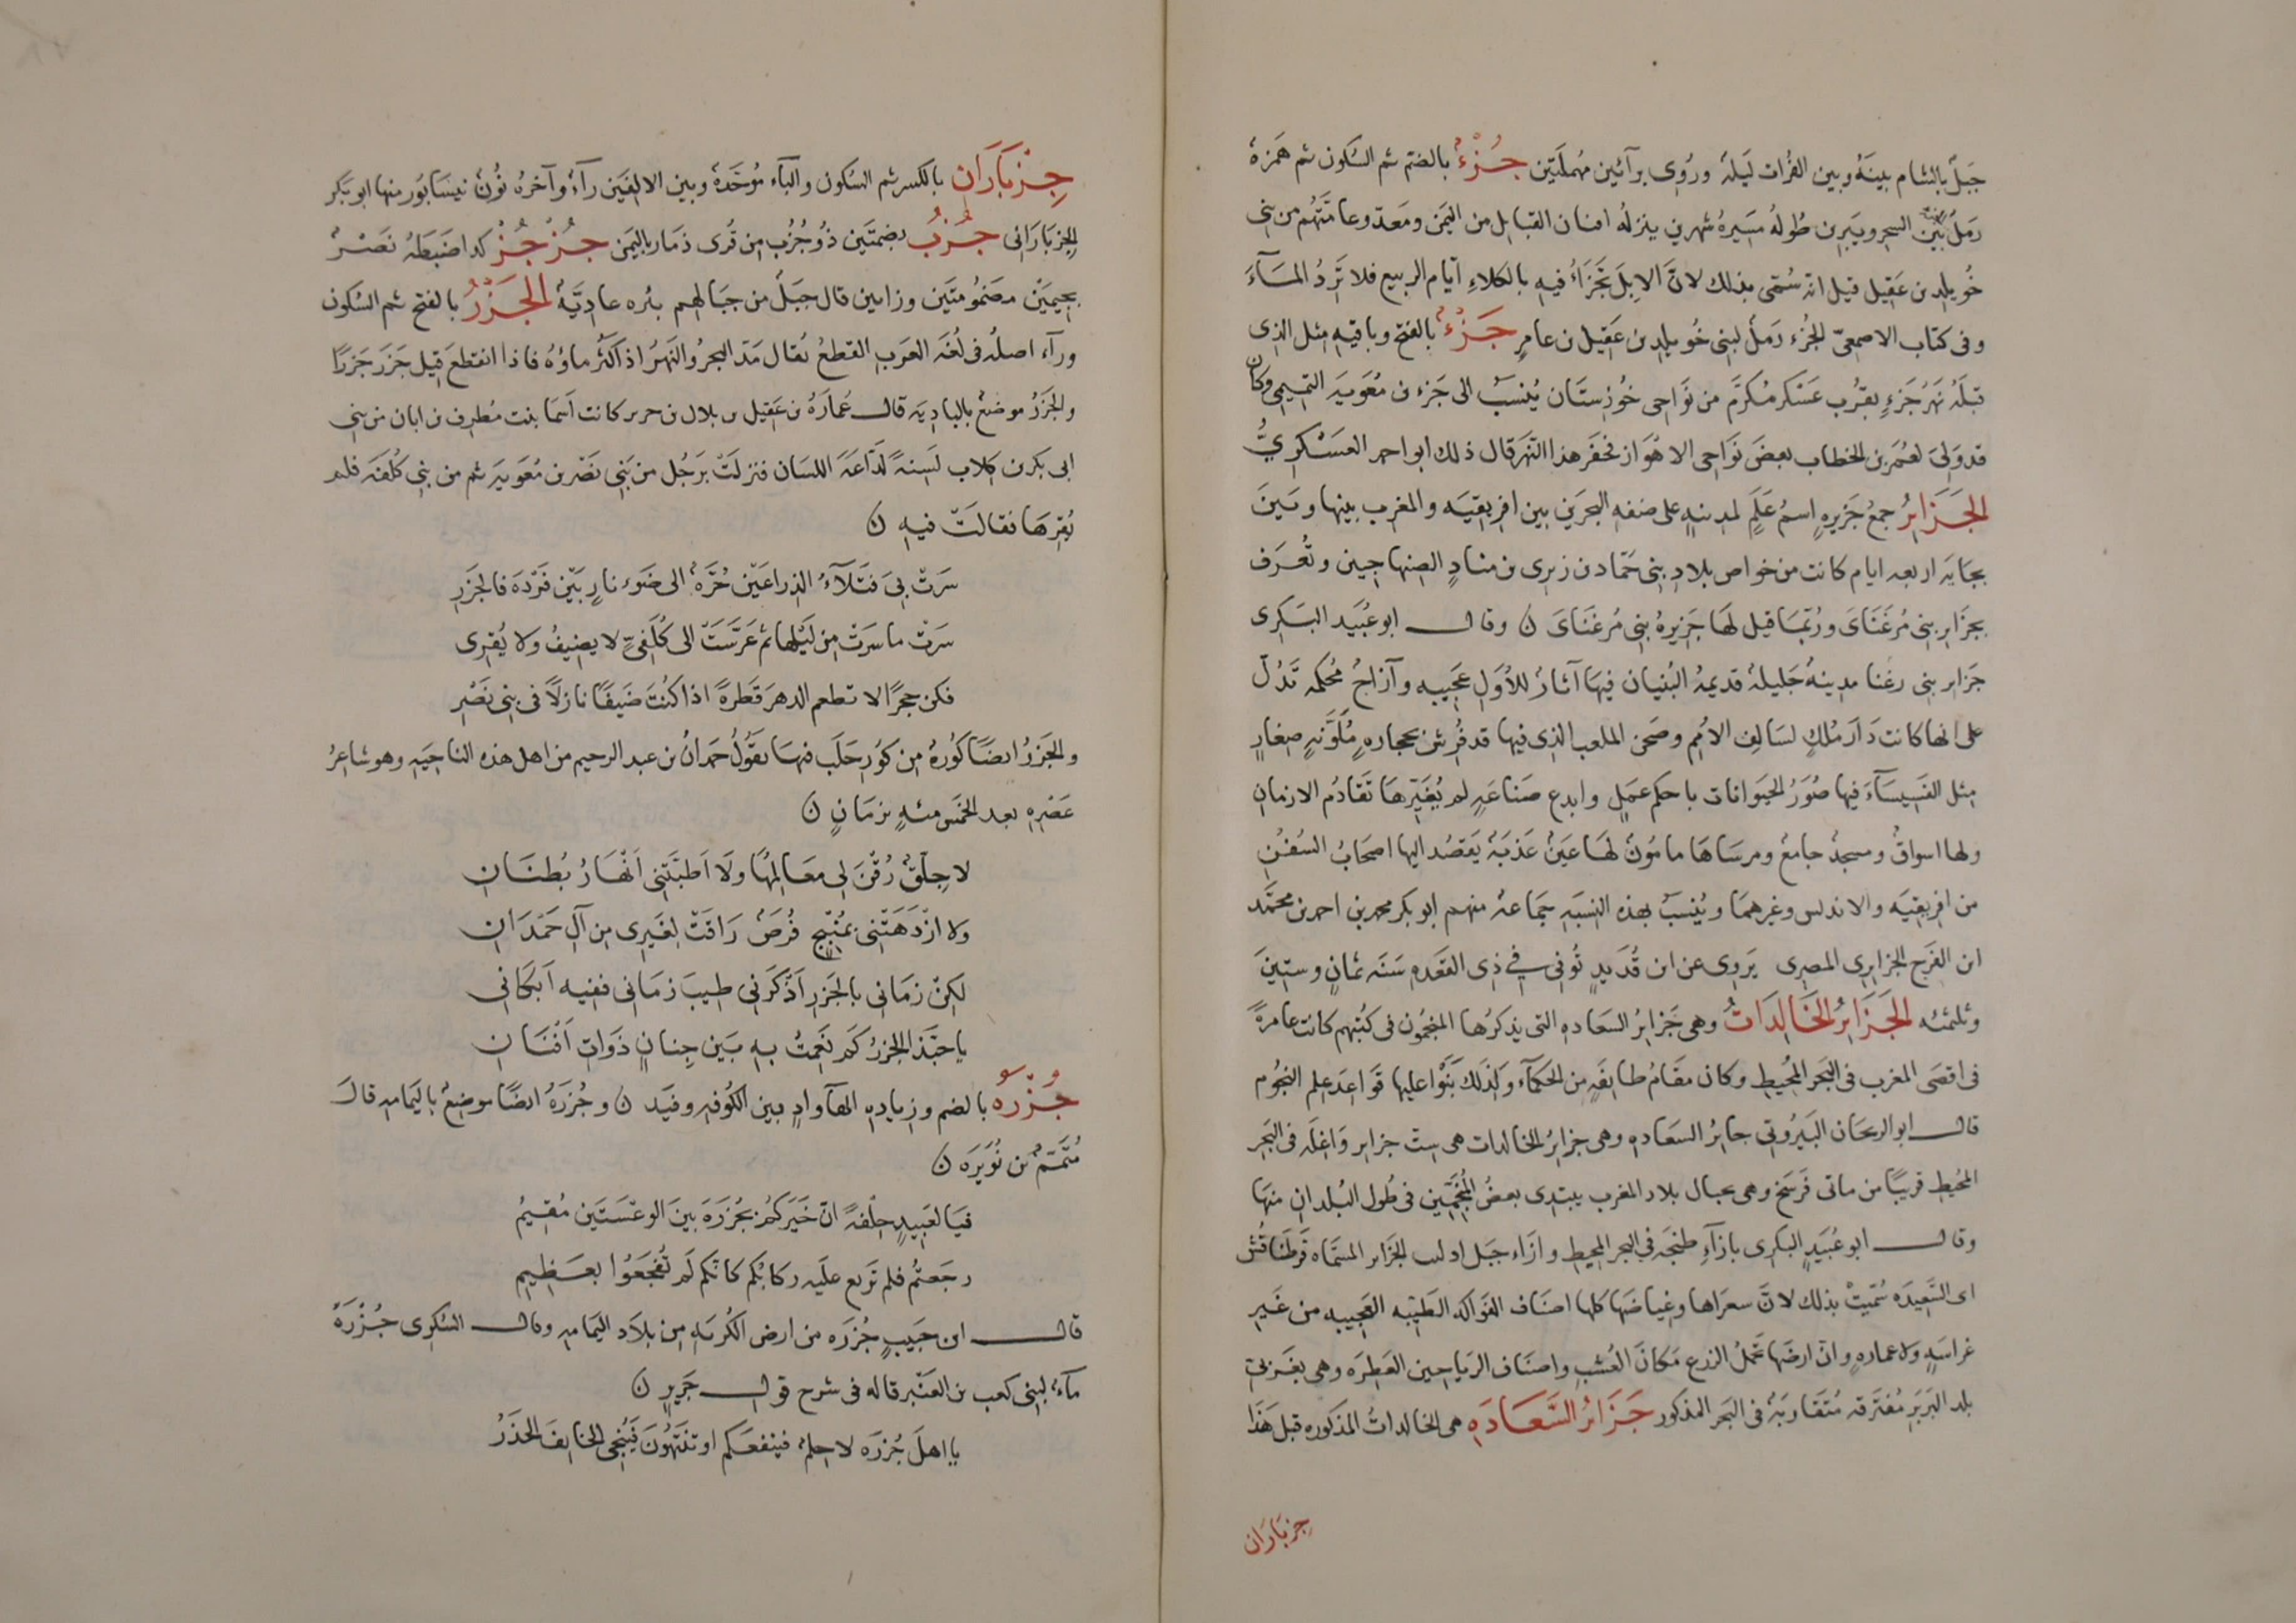 جَبَلٌ بالشام بينَهُ وبين الفُرات لَيلةٌ ورُوِى برآئين مُهملَتَين جُزْءٌ بالضمّ ثم السُكون ثم هَمزةٌ
رَملٌ بَيْنَ الشحر ويَبرِين طُولهُ مَسِيرةُ شهرين ينزلهُ افنان القبايل من اليَمَن ومَعَدّ وعامَّتُهُم من بنى
خُويلِد بن عَقِيل قيل انّه سُمّى بذلك لانّ الاِبلَ تَجْزَأُ فيهِ بالكلاءِ ايّام الربيع فلا تَرِدُ المآءَ
وفى كتاب الاصمعىّ الجُزء رَملٌ لبنى خُويلِد بن عَقِيل بن عامرٍ جَزْءٌ بالفتح وباقيهِ مثل الذى
قبلَهُ نَهرُ جَزءٍ بقُرب عَسْكر مُكرَم من نَوَاحى خُوزِستَان يُنسَبُ الى جَزء بن مُعَوِيَه التميمى وكان
قد وَلِىَ لعُمَر بن الخطاب بعضَ نَوَاحى الاهْوَاز فحَفَر هذا النَّهَر قال ذلك ابو احمد العَسْكَرىُّ
الجَزَايرُ جمعُ جَزِيرهٍ اسمُ عَلَمٍ لمدينهٍ على ضفه البحر بين افريقيَه والمغرب بينها وبَينَ
بجَايَه اربعه ايام كانت من خواص بلادِ بنى حَمّاد بن زيرى بن منادٍ الصنهاجيين وتُعرَف
بجزَايرِ بنى مُزغَنَاىَ ورُبّمَا قيل لَهَا جَزِيرهُ بنى مُزغَنَاىَ ن وقال ابو عُبَيد البَكرِى
جَزاير بنى زغنا مدينهٌ جَليلهٌ قديمهُ البُنيان فيهَا آثارٌ للأُوَلِ عَجِيبه وآزاجٌ مُحكمه تَدُلّ
على انها كانت دَارَ مُلكٍ لسَالف الاُمَم وصَحن الملعب الذى فيها قد فُرِشَ بحجارهٍ مُلَوَّنهٍ صغارٍ
مثل الفسيسَآءَ فيها صُوَرُ الحيَوانات باحكم عَمَلٍ وابدع صَناعَهٍ لم يُغَيِّرهَا تَقَادُم الازمان
ولها اسواقٌ ومسجدٌ جامعٌ ومرسَاهَا مامُونٌ لهَا عَينٌ عَذبَةٌ يَقصُد اليها اصحَابُ السُفُنِ
من افريقيَه والاندلس وغيرهمَا ويُنسَبُ بهذه النسبَهِ جمَاعهٌ منهم ابو بكر محمد بن احمد بن محمَّد
ابن الفَرَج الجزايرى المصرى يَروِى عن ابن قُدَيدٍ تُوفى فى ذى القعَده سَنَه ثمانٍ وستّينَ
وثلثمئه الجَزَايرُ الخَالِدَاتُ وهى جَزايرُ السَعاده التى يذكرُها المنجمُون فى كتُبهم كانت عامرهً
فى اقصَى المغرب فى البَحر المُحيطِ وكان مقَامُ طايفَهٍ من الحُكمآء ولِذَلك بَنَوْا عليها قَوَاعدَ علم النجُوم
قال ابو الريحَان البَيرُونى جزايرُ السَعاده وهى جزايرُ الخالدات هى ستّ جزاير وَاغلَه فى البَحر
المُحيطِ قريبًا من ماتى فَرسَخ وهى بحيال بلاد المغرب يبتدى بعضُ المُنَجّمِين فى طُول البُلدان منهَا
وقال ابو عُبَيدٍ البكرى بازآءِ طنجَه فى البحر المحيط وازاء جبَل ادلنت الجَزاير المسمَّاه قَرطنَاقُش
اى السَّعِيدَه سُمّيَتْ بذلك لانَّ سعرَاها وغياضَهَا كلها اصنَاف الفَواكه الطيّبه العَجيبه من غَير
غراسَهٍ ولا عمارهٍ وانّ ارضَهَا تحَملُ الزرع مَكانَ العُشبِ واصنَاف الرياحِين العَطرَه وهى بغَربىّ
بلد البَربَر مُفتَرقه مُتقَاربَهٌ فى البَحر المذكور جَزَايرُ السَّعَادَهِ هى الخالداتُ المذكوره قبل هَذا
جزبَارَان
جِزْبَارَانِ بالكسر ثم السُكون والبآء مُوَحَّدهٌ وبين الالِفَين رآءٌ وآخرهُ نُونٌ نيسَابُور منها ابو بَكر
الجِزبَارَانى جُزُبُ بضمتَين ذُو جُزُبٍ من قُرى ذمَار باليَمَن جُزْجُزْ كذا ضَبَطَهُ نَصْرٌ
بجيمَيْن مضمُومتَين وزايين قال جبَلٌ من جبَالهم بئره عادِيَّةٌ الجَزْرُ بالفتح ثم السُكون
ورآء اصلُهُ فى لُغَه العَرَب القطعُ يُقال مَدّ البَحرُ والنهرُ اذا كَثُر ماؤُهُ فاذا انقطعَ قيل جَزَرَ جَزرًا
والجَزرُ موضعٌ بالباديَه قال عُمارَهُ بن عَقِيل بن بلال بن جرير كانت اَسمَا بنت مُطرف بن ابان من بنى
ابى بكر بن كلاب لسِنةً لَذّاعَهَ اللسَان فنزلَتْ برَجُل من بَنِى نَصْر بن مُعَويَه ثم من بنى كُلفَه فلم
يُقرِهَا فقالَتْ فيه ن
سَرَتْ بِى فَتلآءُ الذراعَيْن حُرَّهٌ الى ضَوء نارٍ بَيْن فَرْدَهَ فالجَزرِ
سَرَتْ ما سَرَتْ من لَيْلها ثم عَرَّسَتْ الى كُلَفىٍّ لا يضيفُ ولا يُقرِى
فكن حجرًا لا تطعم الدهرَ قَطرَةً اذا كُنتَ ضَيفًا نازلًا فى بنى نَصْرِ
والجَزرُ ايضًا كُورهٌ من كُوَرِ حَلَب فيهَا يقُولُ حَمدانُ بن عبد الرحيم من اهل هذه الناحِيَهِ وهو شاعِرُ
عَصْرِهِ بعد الخَمس مئهٍ بزمَانٍ ن
لا جِلّقٌ رُقْنَ لى معَالمُهَا ولَا اَطَّبَتْنِى اَنْهَارُ بُطنَانِ
ولا ازْدَهَتْنى بمَنْبِجٍ فُرَصٌ رَاقَتْ لِغَيرِى من آلِ حَمْدَانِ
لكنْ زَمَانى بالجَزرِ اَذْكَرَنى طيبَ زمَانى ففيه اَبكَانى
يا حبّذا الجزرُ كَم نَعِمتُ بهِ بَين جِنانٍ ذَواتِ اَفْنَانِ
جُزْرَهُ بالضم وزياده الهآ وادٍ بين الكُوفه وفَيد ن وجُزرَهُ ايضًا موضعٌ باليَمامه قالَ
مُتَمّمُ بن نُوَيرَه ن
فيَا لعَبِيدٍ حِلْفةً انّ خَيرَكُم بجُزرَهَ بَينَ الوَعْسَتَين مُقِيمُ
رجَعتُم فلم تَربَع عليَه ركابُكم كانّكم لَم تُفجَعُوا بعَظِيمِ
قال ابن حَبيبٍ جُزرَه من ارض الكُرمَهِ من بلاد اليمَامه وقال السُكرِى جُزْرَهُ
مآءٌ لبنى كعب بن العَنْبر قاله فى شرح قول جَرِيرٍ ن
يا اهلَ جُزرَه لا حِلمٌ فينفعَكم او تنتَهُونَ فَيُنْجِى الخَايفَ الحَذَرُ